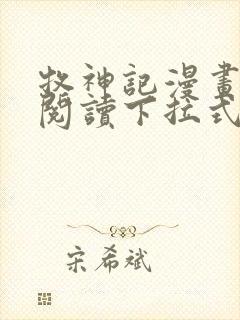 牧神記漫畫
閱讀下拉式
宋希斌